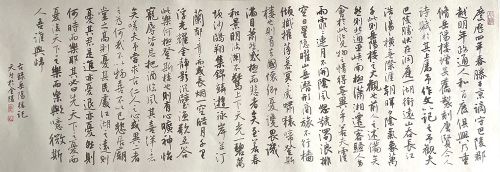 慶曆四年春滕子京謫守巴陵郡
越明年政通人和百廢俱興乃重
修岳陽樓增其舊制刻唐賢今人
詩賦於其上屬予作文以記之予觀夫
巴陵勝狀在洞庭一湖銜遠山吞長江
浩浩湯湯橫無際涯朝暉夕陰氣象萬
千此則岳陽樓之大觀也前人之述備矣
然則北通巫峽南極瀟湘遷客騷人多
會於此覽物之情得無異乎若夫霪
雨霏霏連月不開陰風怒號濁浪排
空日星隱曜山岳潛形商旅不行檣
傾楫摧薄暮冥冥虎嘯猿啼登斯
樓也則有去國懷鄉憂讒畏譏
滿目蕭然感極而悲者矣至若春
和景明波瀾不驚上下天光一碧萬
頃沙鷗翔集錦鱗游泳岸芷汀
蘭郁郁青青而或長煙一空皓月千里
浮光躍金靜影沉璧漁歌互答
此樂何極登斯樓也則有心曠神怡
寵辱皆忘把酒臨風其喜洋洋
者矣嗟夫予嘗求古仁人之心或異二者
之為何哉不以物喜不以己悲居廟
堂之高則憂其民處江湖之遠則
憂其君是進亦憂退亦憂然則
何時而樂耶其必曰先天下之憂而
憂後天下之樂而樂乎噫微斯
人吾誰與歸
岳陽樓記